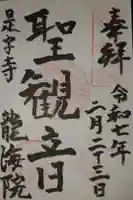 奉拝
令和七年
二月二十三日
聖観音
是字寺
龍海院